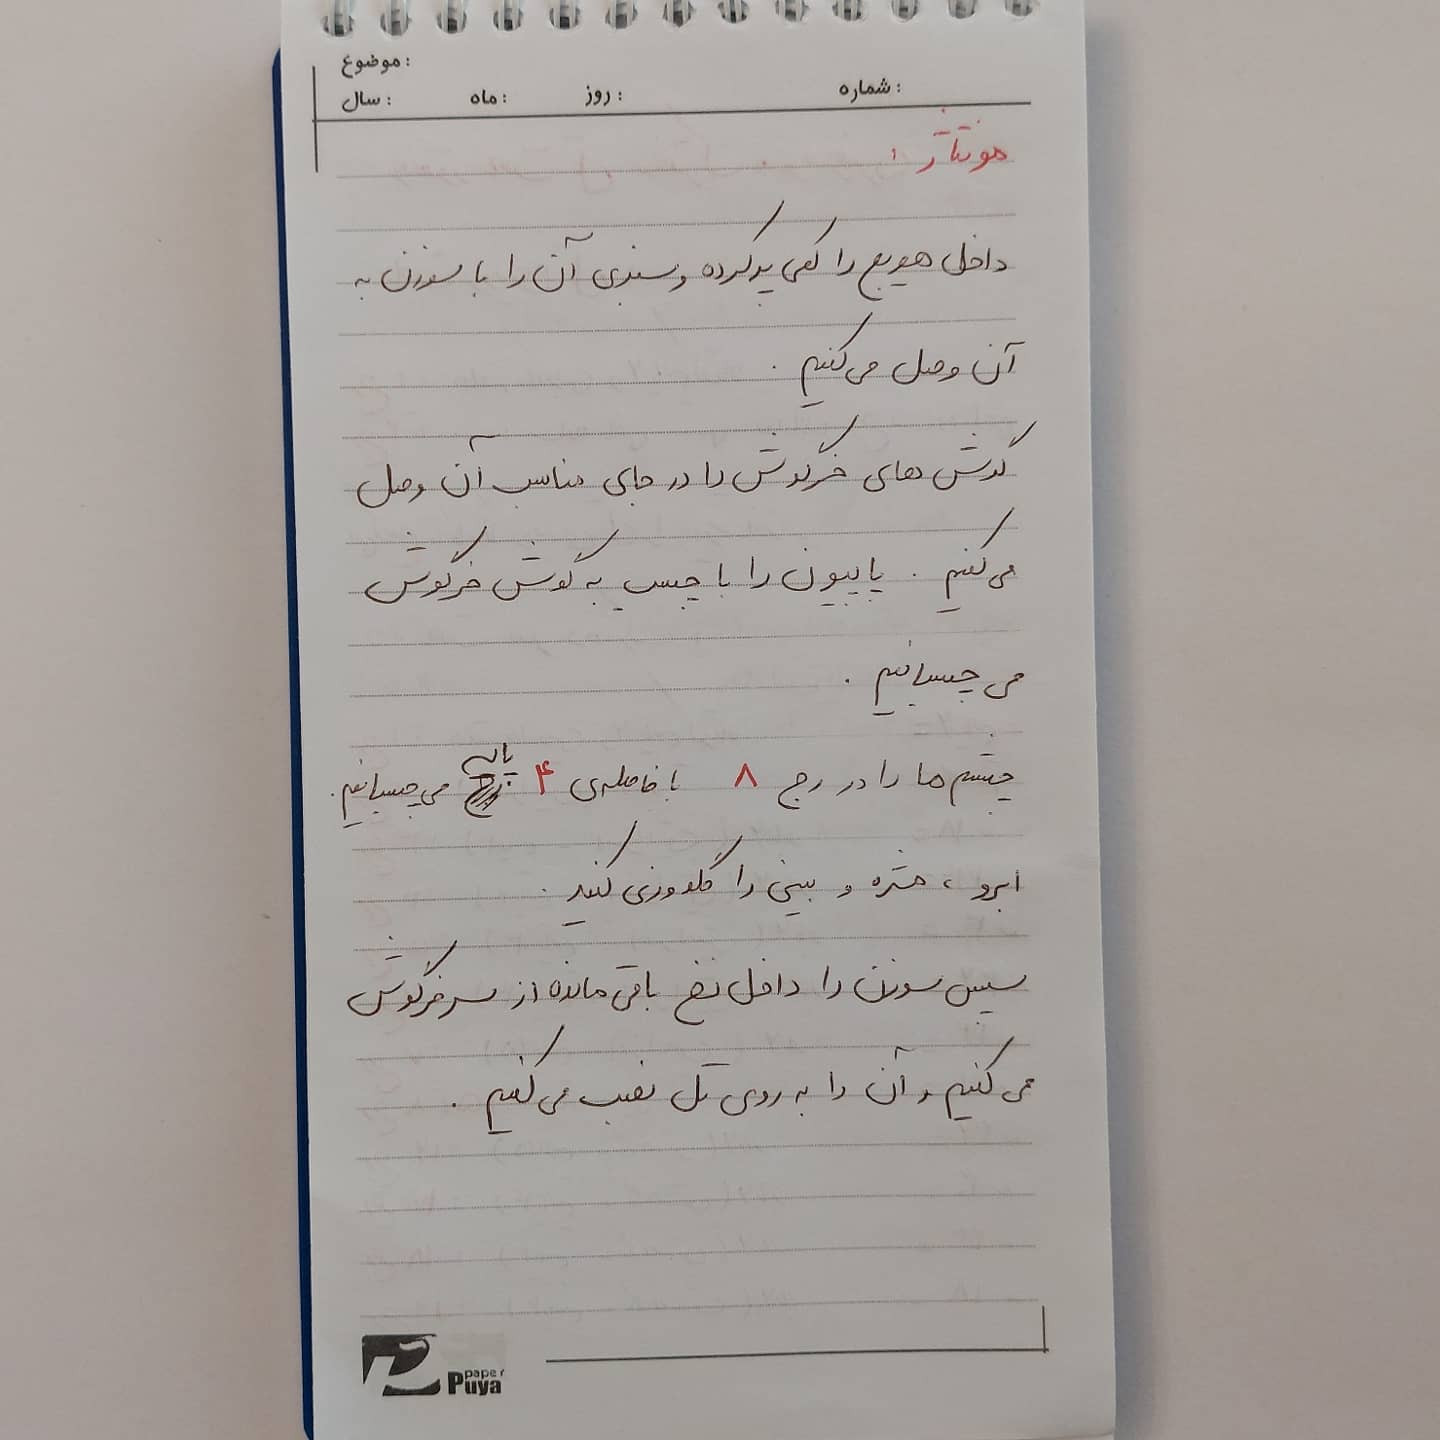 موضوع :
شماره : روز : ماه : سال :
مونتاژ :
داخل هویج را کمی پر کرده و سبزی آن را با سوزن به
آن وصل می کنیم .
گوش های خرگوش را در جای مناسب آن وصل
می کنیم . پاپیون را با چسب به گوش خرگوش
می چسبانیم .
چشم ها را در رج ۸ با فاصله‌ی ۴ پایه می چسبانیم .
ابرو ، مژه و بینی را گلدوزی کنید .
سپس سوزن را داخل نخ باقی مانده از سر خرگوش
می کنیم و آن را به روی تل نصب می کنیم .
paper
Puya